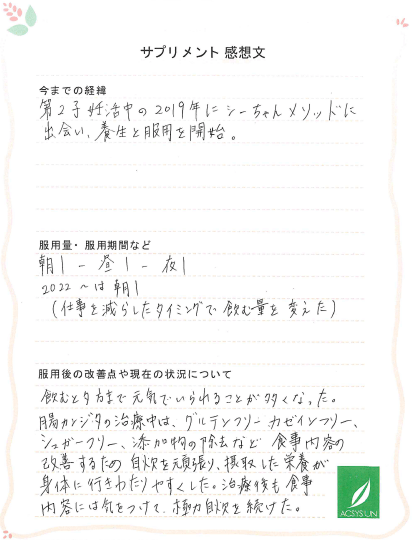 サプリメント 感想文
今までの経緯
第2子妊活中の2019年にシーちゃんメソッドに
出会い、養生と服用を開始。
服用量・服用期間など
朝1 - 昼1 - 夜1
2022〜は朝1
(仕事を減らしたタイミングで飲む量を変えた)
服用後の改善点や現在の状況について
飲むと夕方まで元気でいられることが多くなった。
腸カンジタの治療中は、グルテンフリー カゼインフリー、
シュガーフリー、添加物の除去など 食事内容の
改善するため 自炊を頑張り、摂取した栄養が
身体に行きわたりやすくした。治療後も食事
内容には気をつけて、極力自炊を続けた。
ACSYSUN